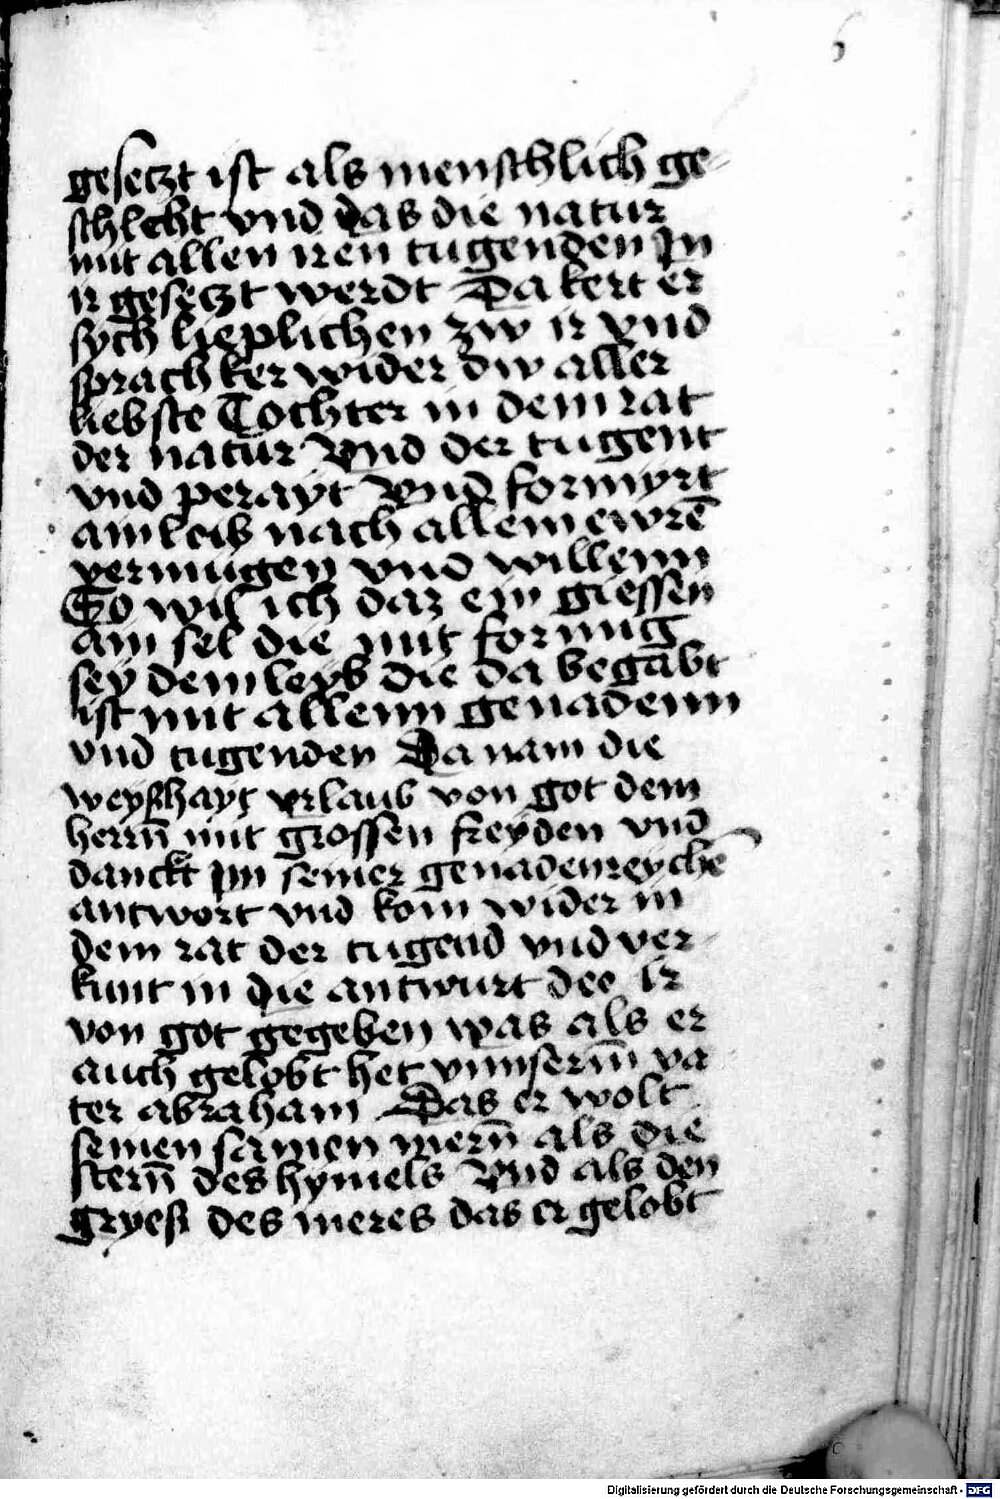 6
gesetzt ist als menschlich ge-
schlecht vnd das die natur
mit allen iren tugenden Jn
ir gesetzt werdt Da kert er
sych lieplichen zw ir vnd
sprach ker wider dw aller
liebste Tochter in dem rat
der natur Vnd der tugent
vnd perayt Vnd formyrt
ain leib nach allem ewrē
vermugen vnd willenn
So wil ich daz ein giessen
ain sel die mit formig
sey dem leyb die da begabt
ist mit allenn genadenn
vnd tugenden Da nam die
weyßhayt vrlaub von got dem
herrn̄ mit grossen freyden vnd
danckt ym seiner genadenreychē
antwort vnd kom wider in
dem rat der tugend vnd ver-
kunt in die antwurt dee ir
von got gegeben was als er
auch gelobt het vnnserm̄ va
ter abraham Das er wolt
seinen samen mern̄ als die
stern̄ des hymels Vnd als den
gryeß des meres das er gelobt
Digitalisierung gefördert durch die Deutsche Forschungsgemeinschaft - DFG